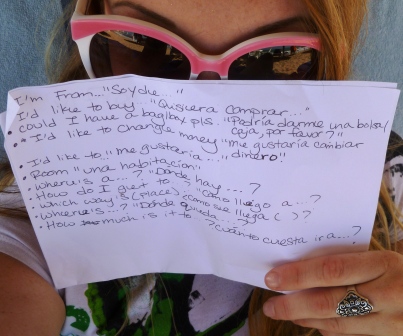 I'm From.. "Soy de..."
I'd like to buy... "Quisiera comprar..."
• could I have a bag/box pls.. "Podría darme una bolsa/
caja, por favor?"
•• I'd like to change money "me gustaría cambiar
dinero"
• I'd like to.. "me gustaría...,
• Room "una habitación"
• where is a...? "Dónde hay...?
• How do I get to...? "Cómo llego a..?
• which way is (place)..¿cómo se llega ( )?
• Where is...? "Dónde queda...?
• How much is it to..? ¿cuánto cuesta ir a...?